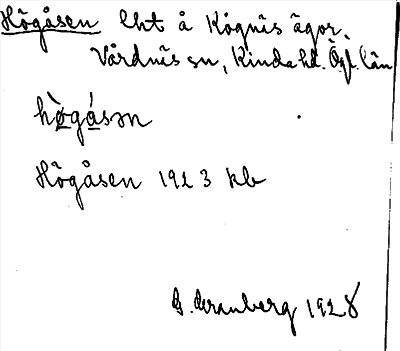 Högåsen lht å Kögnäs ägor.
Vårdnäs sn, Kinda hd. Ögl. län
hö̀gásәn
Högåsen 1923 kb
G. Franberg 1928